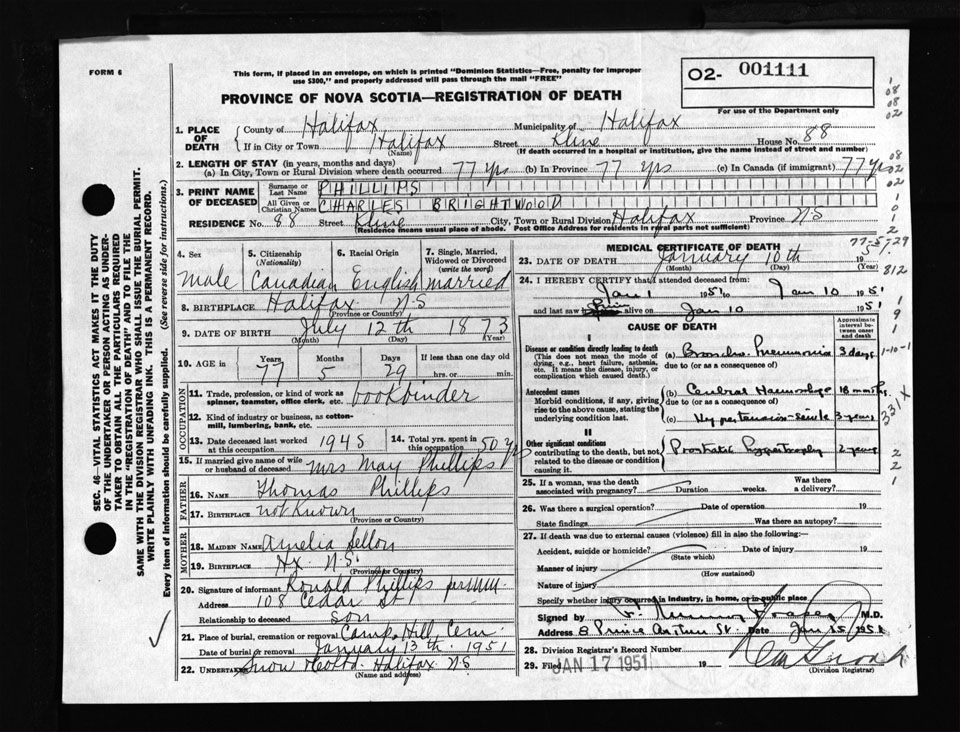 FORM 6
This form, if placed in an envelope, on which is printed "Dominion Statistics—Free, penalty for improper
use $300," and properly addressed will pass through the mail "FREE"
PROVINCE OF NOVA SCOTIA—REGISTRATION OF DEATH
O2- 001111
For use of the Department only
1. PLACE OF DEATH
County of Halifax Municipality of Halifax
If in City or Town Halifax Street Kline House No. 88
(Name) (If death occurred in a hospital or institution, give the name instead of street and number)
2. LENGTH OF STAY (in years, months and days)
(a) In City, Town or Rural Division where death occurred 77 yrs (b) In Province 77 yrs (c) In Canada (if immigrant) 77 yrs
3. PRINT NAME OF DECEASED
Surname or Last Name PHILLIPS
All Given or Christian Names CHARLES BRIGHTWOOD
RESIDENCE No. 88 Street Kline City, Town or Rural Division Halifax Province NS
(Residence means usual place of abode. Post Office Address for residents in rural parts not sufficient)
SEC. 46—VITAL STATISTICS ACT MAKES IT THE DUTY
OF THE UNDERTAKER OR PERSON ACTING AS UNDER-
TAKER TO OBTAIN ALL THE PARTICULARS REQUIRED
IN THE "REGISTRATION OF DEATH" AND TO FILE THE
SAME WITH THE DIVISION REGISTRAR WHO SHALL ISSUE THE BURIAL PERMIT.
WRITE PLAINLY WITH UNFADING INK. THIS IS A PERMANENT RECORD.
Every item of Information should be carefully supplied. (See reverse side for instructions.)
4. Sex
Male
5. Citizenship
(Nationality)
Canadian
6. Racial Origin
English
7. Single, Married, Widowed or Divorced
(write the word)
Married
8. BIRTHPLACE Halifax NS
(Province or Country)
9. DATE OF BIRTH July 12th 1873
(Month) (Day) (Year)
10. AGE in
Years Months Days If less than one day old
77 5 29 hrs. or min.
OCCUPATION
11. Trade, profession, or kind of work as
spinner, teamster, office clerk, etc. bookbinder
12. Kind of industry or business, as cotton-
mill, lumbering, bank, etc.
13. Date deceased last worked
at this occupation 1945
14. Total yrs. spent in
this occupation 50 yrs
15. If married give name of wife
or husband of deceased Mrs May Phillips
FATHER
16. NAME Thomas Phillips
17. BIRTHPLACE not known
(Province or Country)
MOTHER
18. MAIDEN NAME Amelia Sellon
19. BIRTHPLACE Hx. N.S.
(Province or Country)
20. Signature of informant Ronald Phillips
Address 108 Cedar St
Relationship to deceased son
21. Place of burial, cremation or removal Camp Hill Cem.
Date of burial or removal January 13th 1951
22. UNDERTAKER Snow & Co Ltd. Halifax NS
(Name and address)
MEDICAL CERTIFICATE OF DEATH
23. DATE OF DEATH January 10th 1951
(Month) (Day) (Year)
24. I HEREBY CERTIFY that I attended deceased from:
Jan 1 1951 to Jan 10 1951
and last saw him alive on Jan 10 1951
CAUSE OF DEATH
Approximate interval between onset and death
I
Disease or condition directly leading to death
(This does not mean the mode of dying, e.g., heart failure, asthenia, etc. It means the disease, injury, or complication which caused death.)
(a) Broncho-Pneumonia 3 days
due to (or as a consequence of)
Antecedent causes
Morbid conditions, if any, giving rise to the above cause, stating the underlying condition last.
(b) Cerebral Haemorrhage 18 months
due to (or as a consequence of)
(c) Hypertension-senile 3 years
II
Other significant conditions
contributing to the death, but not related to the disease or condition causing it.
Prostatic Hypertrophy 2 years
25. If a woman, was the death
associated with pregnancy? Duration weeks. Was there
a delivery?
26. Was there a surgical operation? Date of operation 19
State findings Was there an autopsy?
27. If death was due to external causes (violence) fill in also the following:—
Accident, suicide or homicide? Date of injury 19
(State which)
Manner of injury
(How sustained)
Nature of injury
Specify whether injury occurred in industry, in home, or in public place
Signed by M.D.
Address 8 Prince Arthur St. Date Jan 15 1951
28. Division Registrar's Record Number
29. Filed JAN 17 1951 19
(Division Registrar)
1
08
08
02
08
02
02
1
0
1
2
77-5-29
812
1
9
1
1-10-1
331X
2
2
1